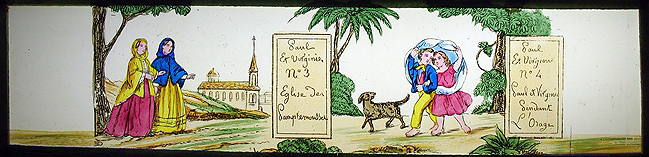 Paul
Et Virginie
N° 3
Eglise des
Pamplemousses
Paul
Et Virginie
N° 4
Paul et Virginie
Pendant
L'Orage